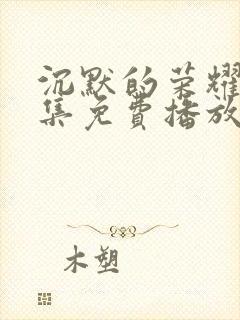 沉默的荣耀
集免费播放
木塑